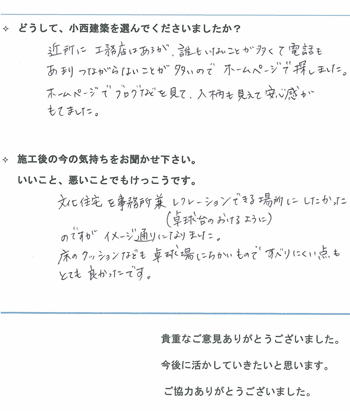 ✧ どうして、小西建築を選んでくださいましたか？
近所に工務店はあるが、誰もいないことが多くて電話も
あまりつながらないことが多いので ホームページで探しました。
ホームページでブログなどを見て、人柄も見えて安心感が
もてました。
✧ 施工後の今の気持ちをお聞かせ下さい。
いいこと、悪いことでもけっこうです。
文化住宅を事務所兼レクレーションできる場所にしたかった
(卓球台のおけるように)
のですが イメージ通りになりました。
床のクッションなども卓球場にちかいもので すべりにくい点も
とても良かったです。
貴重なご意見ありがとうございました。
今後に活かしていきたいと思います。
ご協力ありがとうございました。